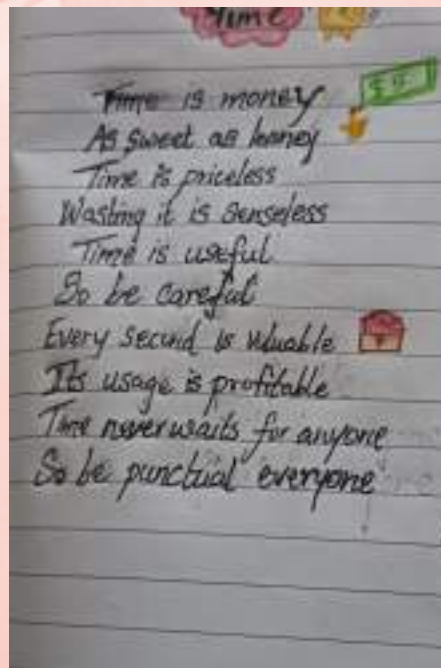 Time
$ $
Time is money
As sweet as honney
Time is priceless
Wasting it is senseless
Time is useful
So be careful
Every second is valuable
Its usage is profitable
Time never waits for anyone
So be punctual everyone